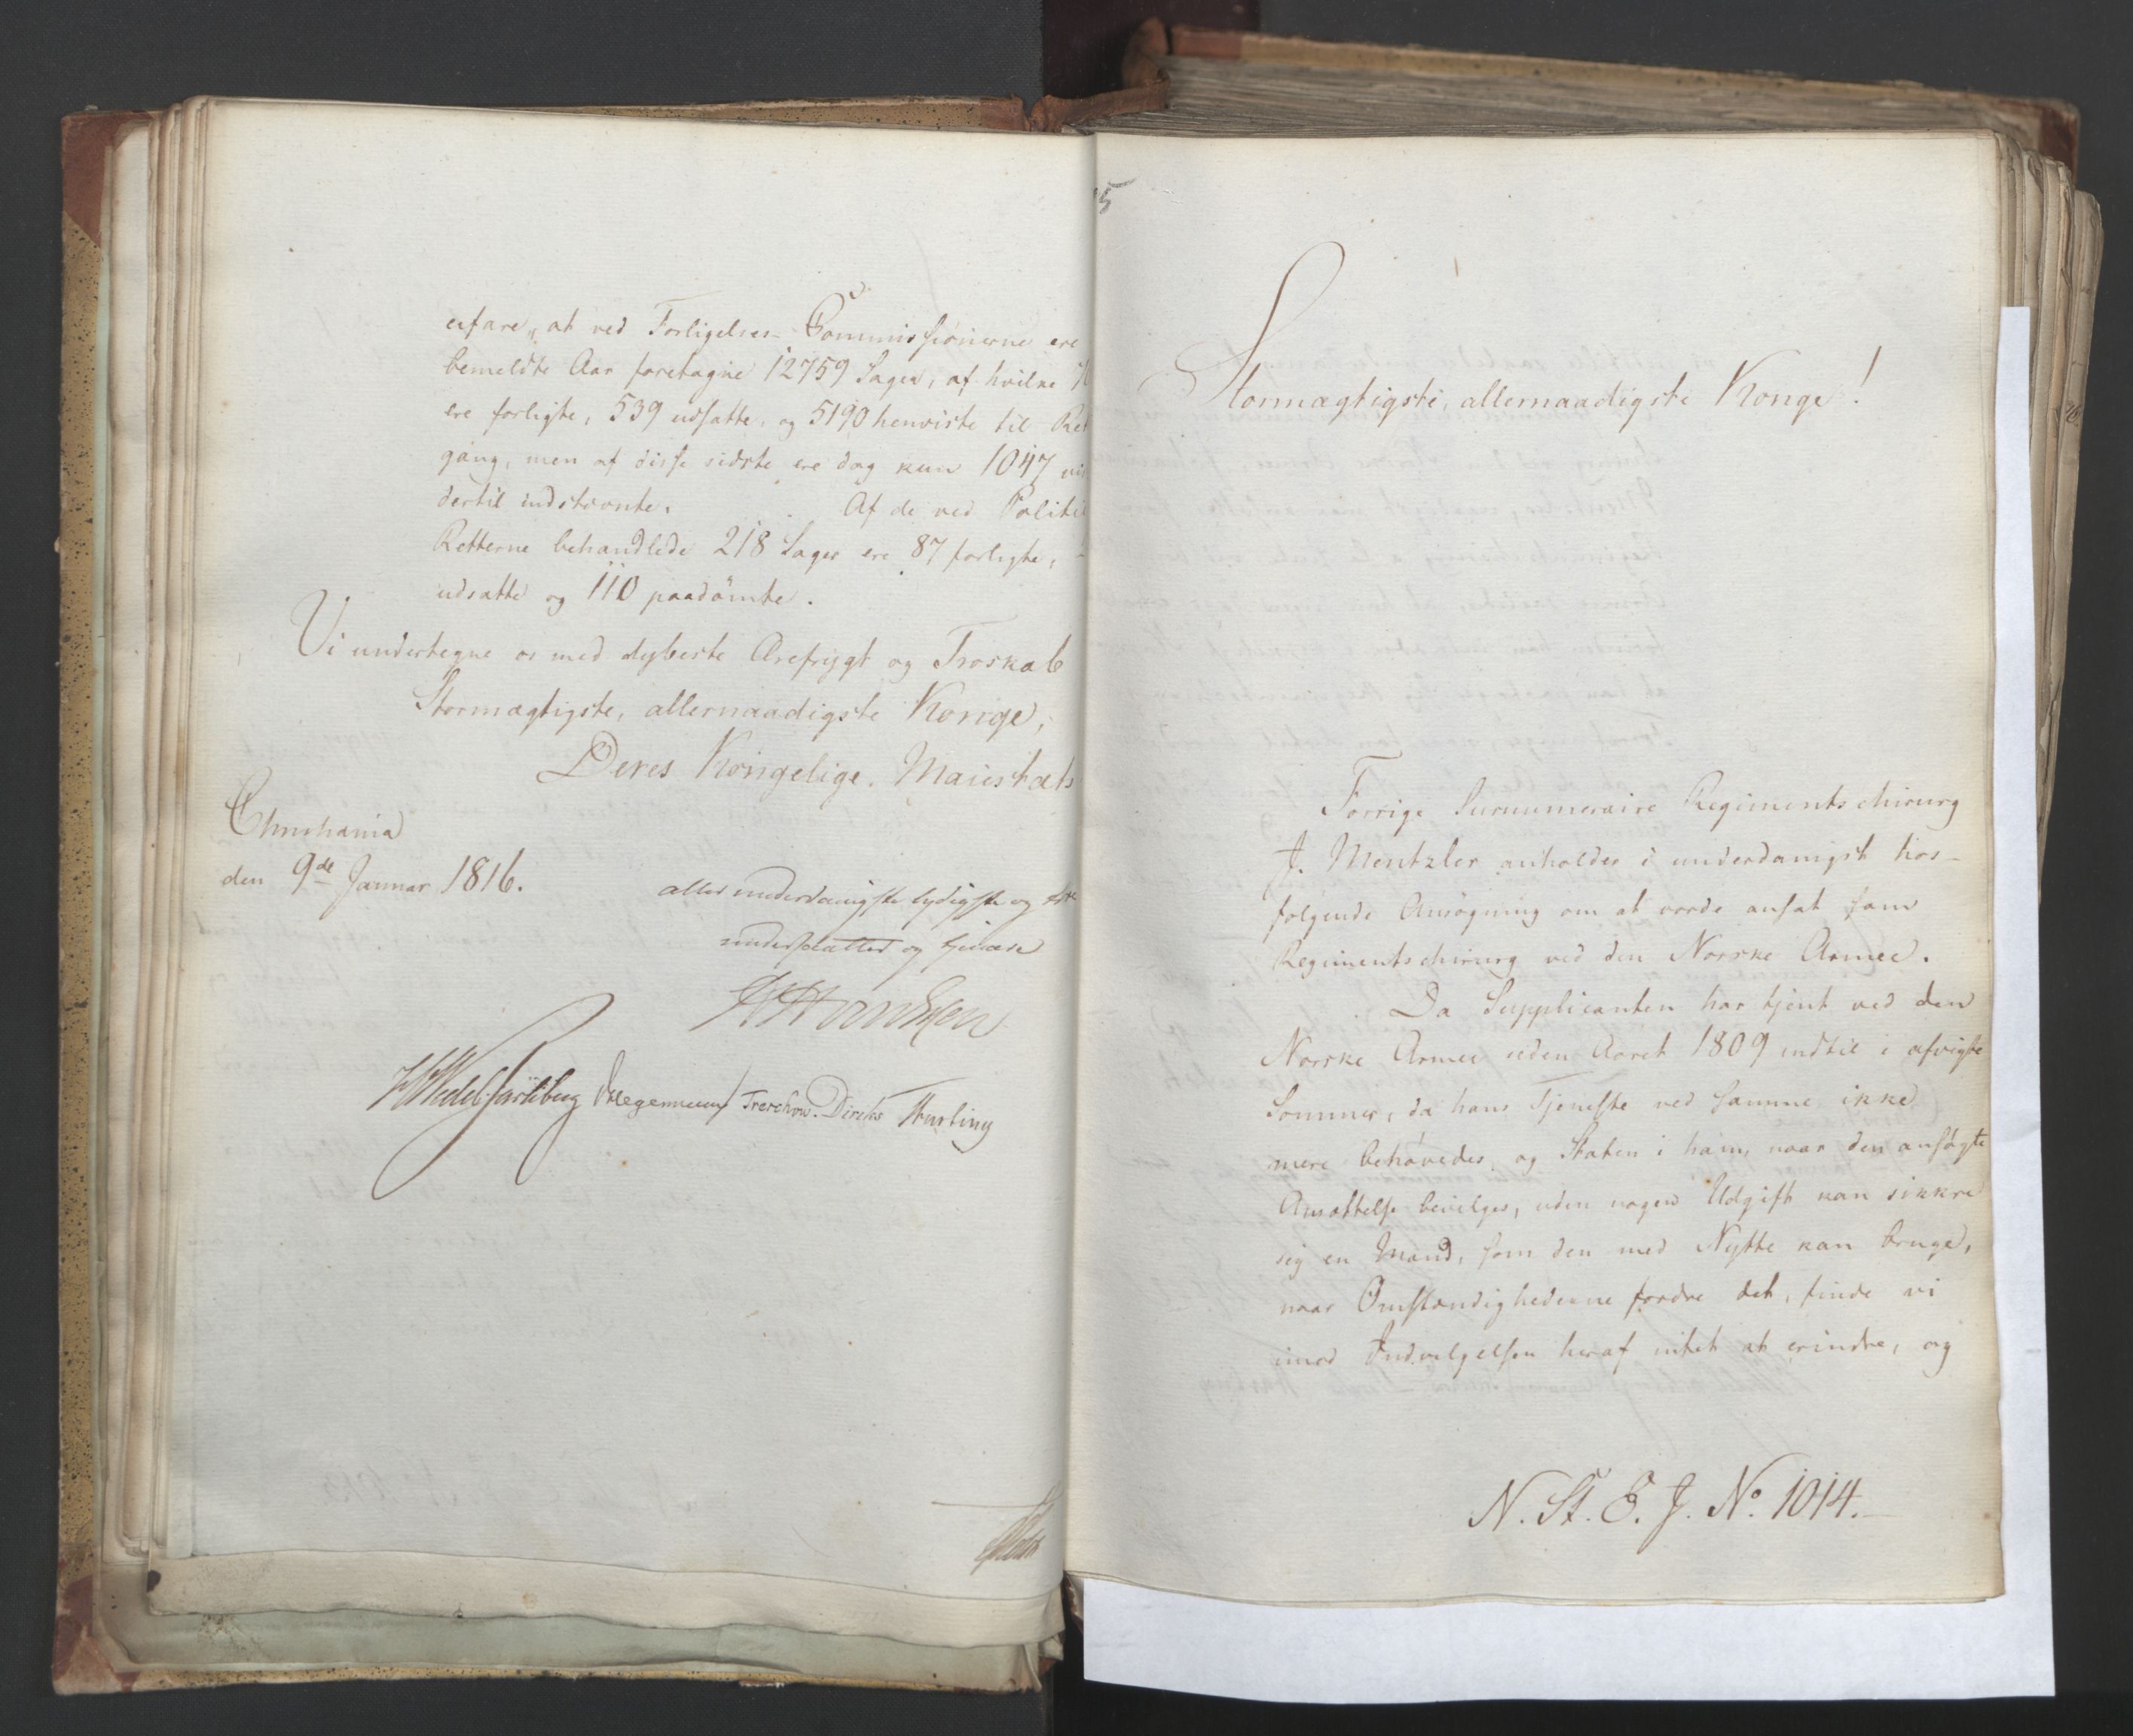 erfare, at ved Forligelses-Commissionerne ere
bemeldte Aar foretagne 12759 Sager, af hvilke
ere forligte, 539 udsatte, og 5190 henviste til Ret
gang, men af disse sidste ere dog kun 1047
dertil indstevnte. Af de ved Politi
Retterne behandlede 218 Sager ere 87 forligte,
udsatte og 110 paadömte.
Vi undertegne os med dybeste Ærefrygt og Troskab
Stormægtigste, allernaadigste Konge,
Deres Kongelige Maiestæts
Christiania
den 9de Januar 1816.
allerunderdanigste lydigste og
undersaatter og tienere
Wedel Jarlsberg Treschow. Diriks
5
Stormægtigste, allernaadigste Konge!
Forrige Surnumeraire Regimentschirurg
J. Mentzler anholder i underdanigst hos-
følgende Ansögning om at vorde ansat som
Regimentschirurg ved den Norske Armee.
Da Supplicanten har tjent ved den
Norske Armee siden Aaret 1809 indtil i afvigte
Sommer, da hans Tjeneste ved samme ikke
mere behövedes, og Staten i ham, naar den ansögte
Ansættelse bevilges, uden nogen Udgift kan sikkre
sig en Mand, som den med Nytte kan bruge,
naar Omstændighederne fordre det, finde vi
imod Indvilgelsen heraf intet at erindre, og
N. St. E. J. No. 1014.